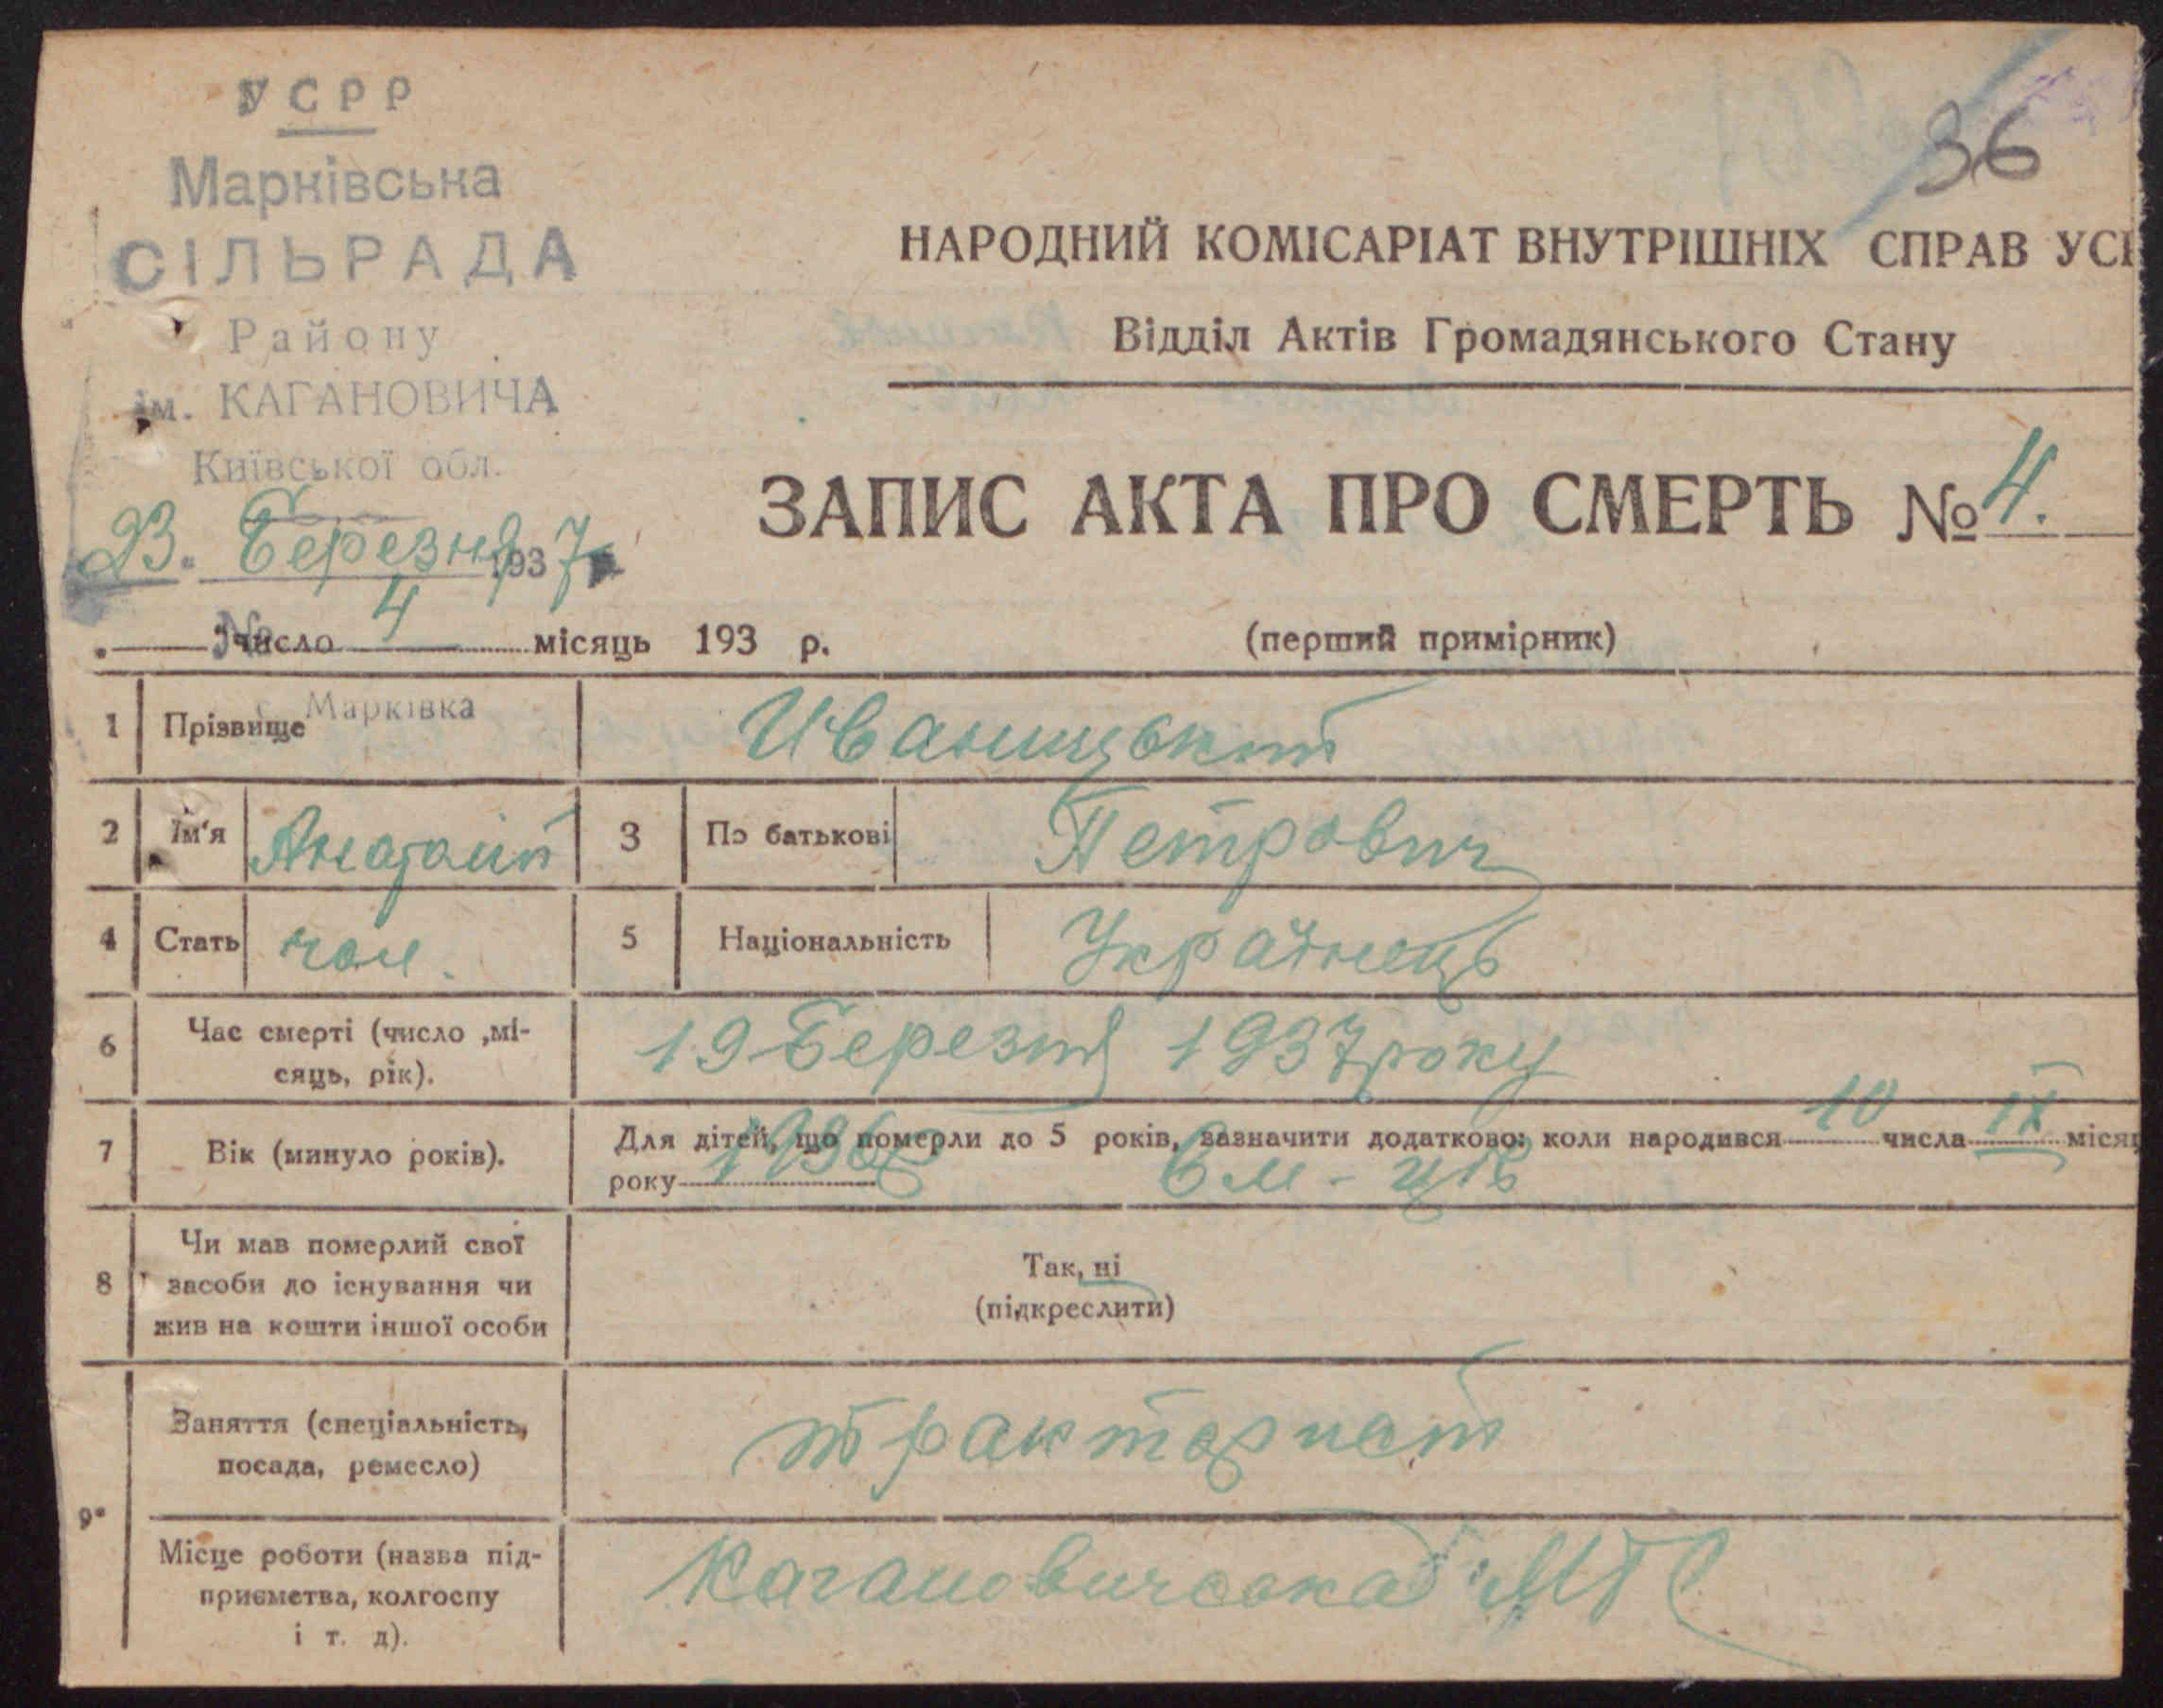 УСРР
36
Марківська
СІЛЬРАДА
НАРОДНИЙ КОМІСАРІАТ ВНУТРІШНІХ СПРАВ УСР
Району
Відділ Актів Громадянського Стану
ім. КАГАНОВИЧА
Київської обл.
ЗАПИС АКТА ПРО СМЕРТЬ № 4.
23. Березня 1937
№ 4
число місяць 193 р.
(перший примірник)
с. Марківка
1 Прізвище Иваницький
2 Ім'я 3 По батькові Петрович
4 Стать чол. 5 Національність Українець
6 Час смерті (число ,мі-
сяць, рік).
19 Березня 1937 року
7 Вік (минуло років). Для дітей, що померли до 5 років, зазначити додатково: коли народився 10 числа IX місяц
року 1936 р 6 м-ців
8 Чи мав померлий свої
засоби до існування чи
жив на кошти іншої особи
Так, ні
(підкреслити)
9. Заняття (спеціальність,
посада, ремесло)
тракторист
Місце роботи (назва під-
приємства, колгоспу
і т. д).
Кагановичська МТС